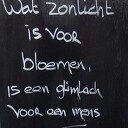 Wat zonlicht
is voor
bloemen,
is een glimlach
voor een mens